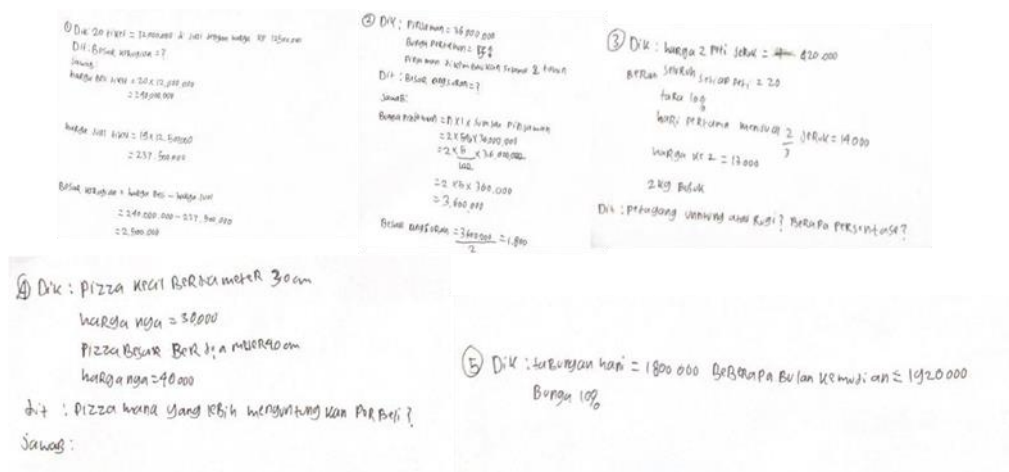 ① Dik 20 tiket = 12.000.000 di jual dengan harga RP 12500.000
Dit : Besar kerugian = ?
Jawab :
harga Beli tiket = 20 x 12.000.000
= 240.000.000
harga Jual tiket = 19 x 12.500.000
= 237.500.000
Besar kerugian = harga Beli - harga Jual
= 240.000.000 - 237.500.000
= 2.500.000
② DIK : Pinjaman = 36.000.000
Bunga Pertahun = 5%
Pinjaman dikembalikan selama 2 tahun
Dit : Besar angsuran = ?
Jawab :
Bunga = n x 1 x Jumlah Pinjaman
= 2 x 5% x 36.000.000
= 2 x 5/100 x 36.000.000
= 2 x 5 x 360.000
= 3.600.000
Besar angsuran = 3600000/2 = 1.800
③ Dik : harga 2 Peti Jeruk = 420.000
Berat seluruh setiap Peti = 20
tara 10%
hari Pertama menjual 2/3 Jeruk = 14000
harga ke 2 = 13000
2 kg Busuk
Dit : Pedagang untung atau Rugi ? Berapa Persentase ?
④ Dik : Pizza kecil Berdiameter 30 cm
harga nya = 30,000
Pizza Besar Berdiameter 40 cm
harga nya = 40 000
dit : Pizza mana yang lebih menguntung kan PemBeli ?
Jawab :
⑤ Dik : tabungan hani = 1800 000 BeBerapa Bulan kemudian = 1920 000
Bunga 10%